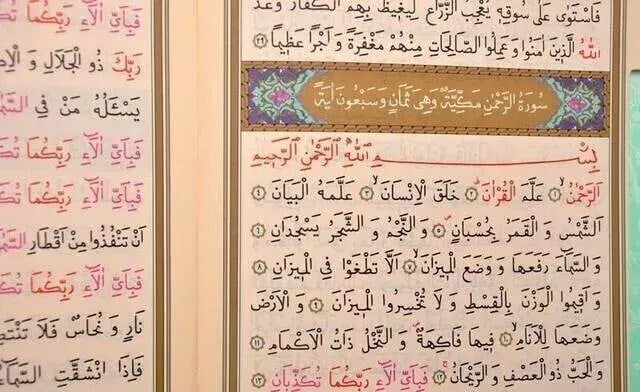 فَاسْتَوٰى عَلٰى سُوقِهٖ يُعْجِبُ الزُّرَّاعَ لِيَغٖيظَ بِهِمُ الْكُفَّارَ وَعَدَ
اللّٰهُ الَّذٖينَ اٰمَنُوا وَعَمِلُوا الصَّالِحَاتِ مِنْهُمْ مَغْفِرَةً وَ اَجْرًا عَظٖيمًا ٢٩
سُورَةُ الرَّحْمٰنِ مَكِّيَّةٌ وَهِيَ ثَمَانٍ وَسَبْعُونَ اٰيَةً
بِسْمِ اللّٰهِ الرَّحْمٰنِ الرَّحٖيمِ
اَلرَّحْمٰنُ ١ عَلَّمَ الْقُرْاٰنَ ٢ خَلَقَ الْاِنْسَانَ ٣ عَلَّمَهُ الْبَيَانَ ٤
اَلشَّمْسُ وَ الْقَمَرُ بِحُسْبَانٍ ٥ وَ النَّجْمُ وَ الشَّجَرُ يَسْجُدَانِ ٦
وَ السَّمَاءَ رَفَعَهَا وَ وَضَعَ الْمٖيزَانَ ٧ اَلَّا تَطْغَوْا فِي الْمٖيزَانِ ٨
وَ اَقٖيمُوا الْوَزْنَ بِالْقِسْطِ وَ لَا تُخْسِرُوا الْمٖيزَانَ ٩ وَ الْاَرْضَ
وَضَعَهَا لِلْاَنَامِ ١٠ فٖيهَا فَاكِهَةٌ وَ النَّخْلُ ذَاتُ الْاَكْمَامِ ١١
وَ الْحَبُّ ذُو الْعَصْفِ وَ الرَّيْحَانُ ١٢ فَبِاَيِّ اٰلَاءِ رَبِّكُمَا تُكَذِّبَانِ ١٣
فَبِاَيِّ اٰلَاءِ رَبِّكُمَا
رَبِّكَ ذُو الْجَلَالِ وَ
يَسْـَٔلُهُ مَنْ فِي
فَبِاَيِّ اٰلَاءِ رَبِّكُمَا
فَبِاَيِّ اٰلَاءِ رَبِّكُمَا
اَنْ تَنْفُذُوا مِنْ اَقْطَارِ
فَبِاَيِّ اٰلَاءِ رَبِّكُمَا
نَارٍ وَ نُحَاسٌ فَلَا
فَاِذَا انْشَقَّتِ السَّمَاءُ